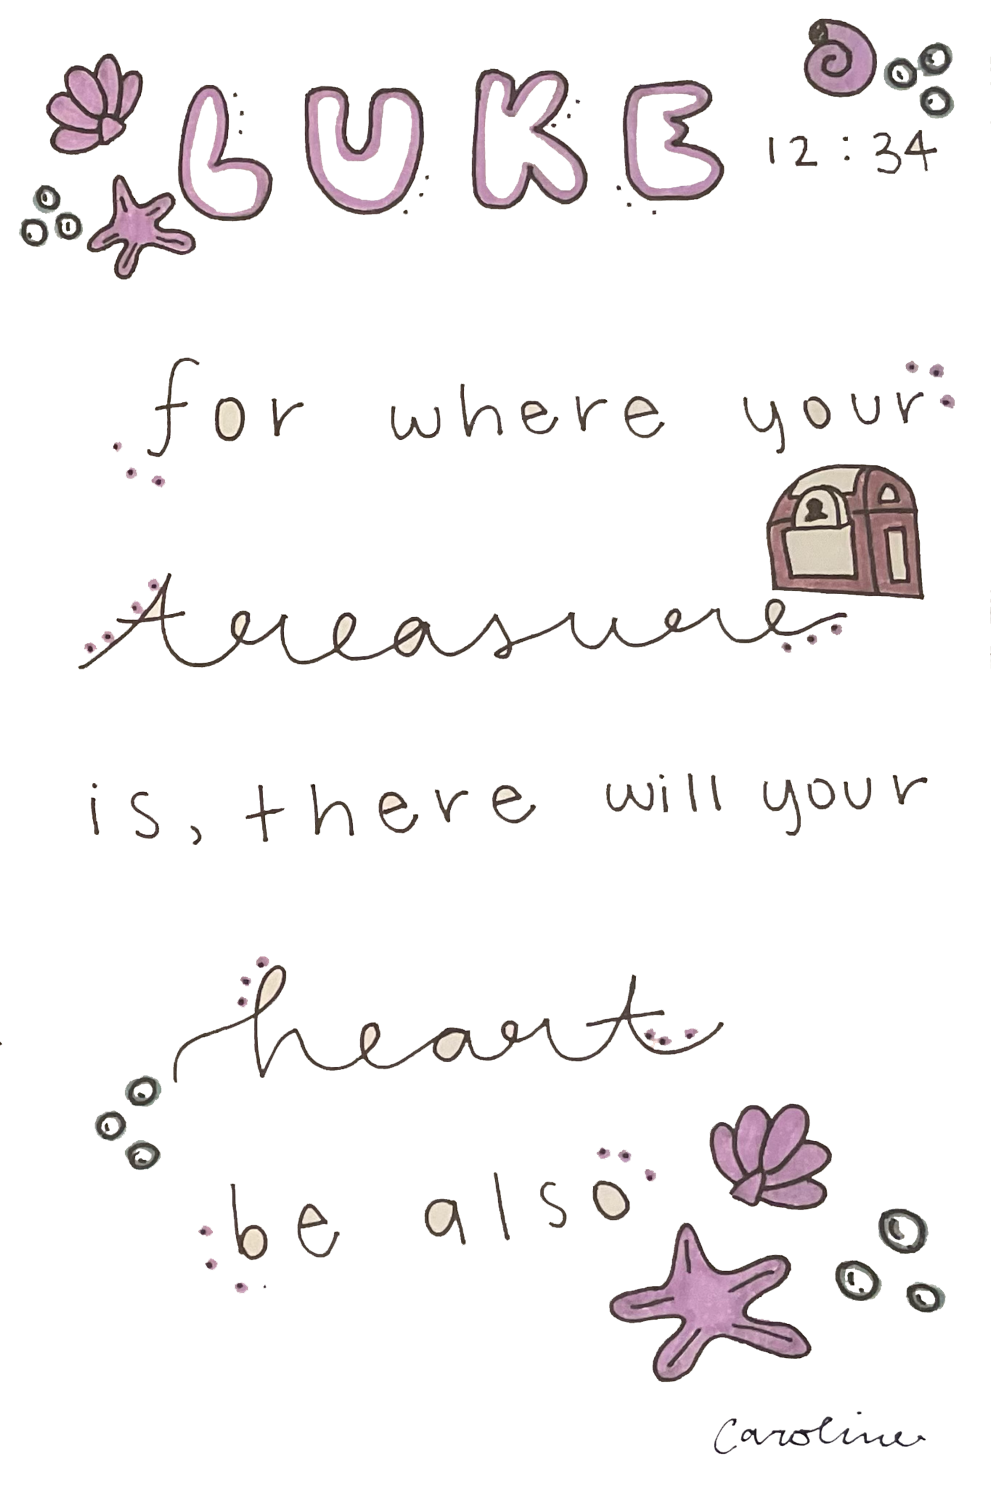 LUKE 12:34
for where your
treasure
is, there will your
heart
be also
Caroline